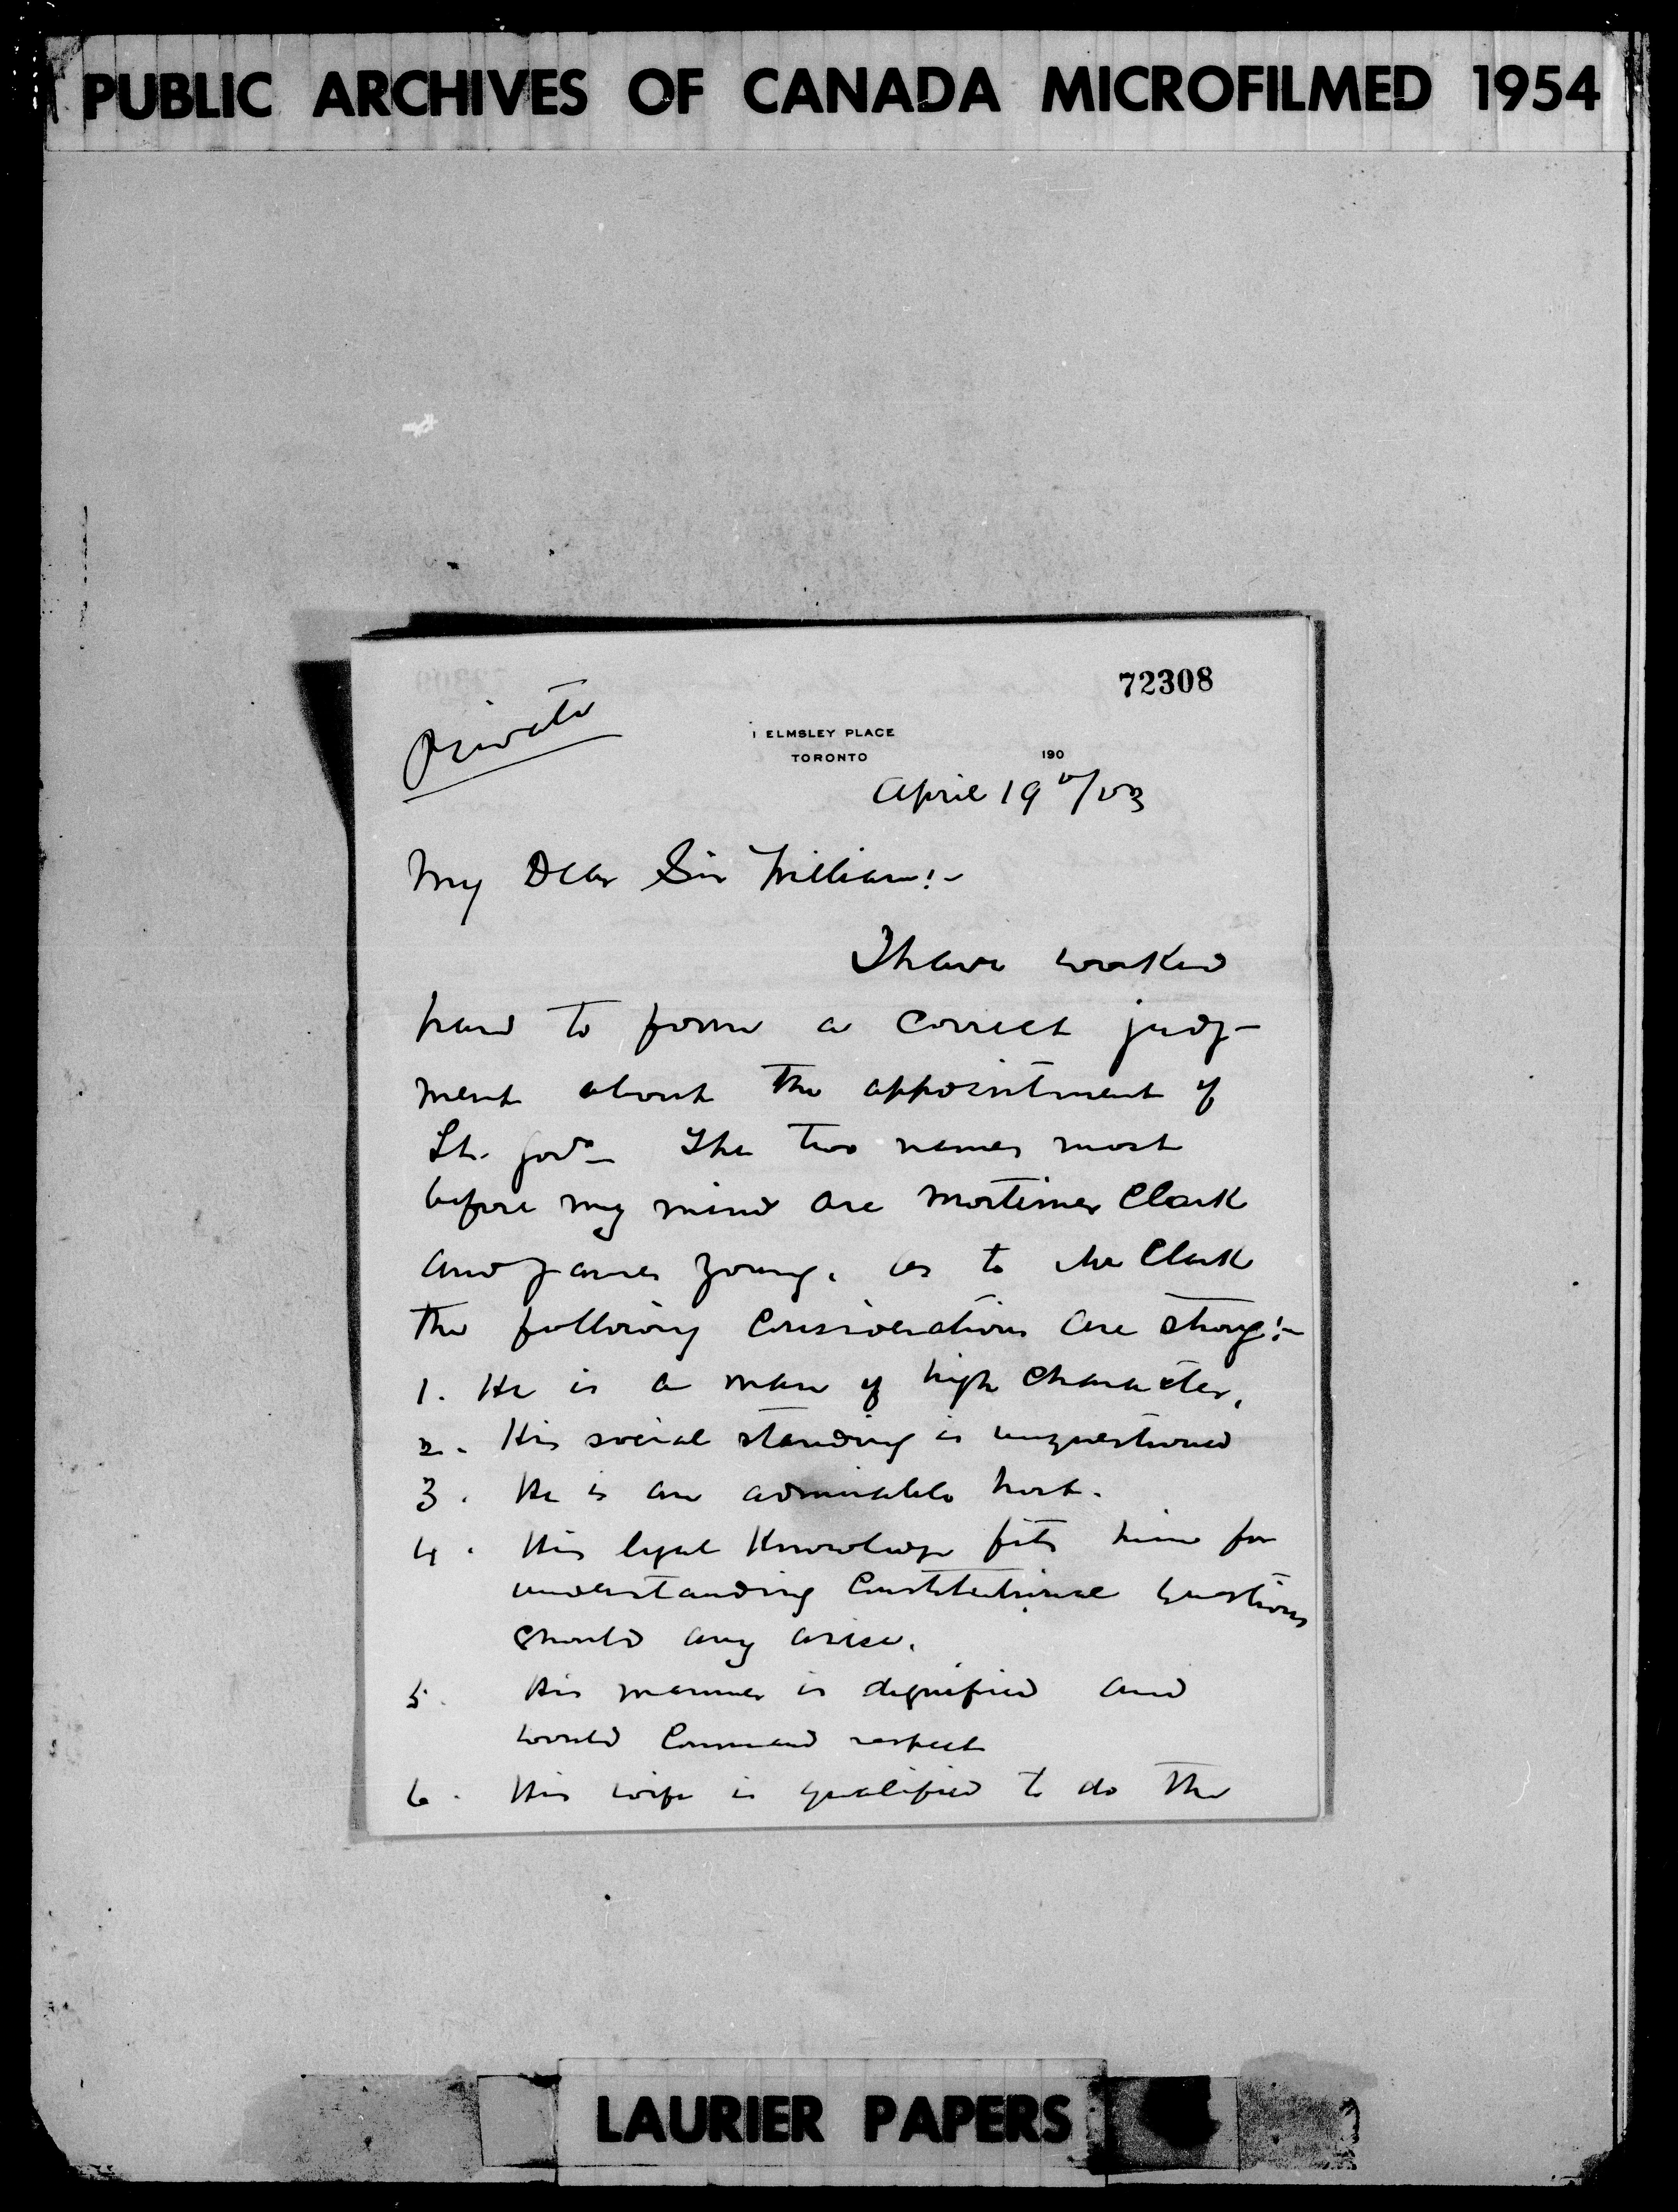 PUBLIC ARCHIVES OF CANADA MICROFILMED 1954
72308
Private
1 ELMSLEY PLACE
TORONTO
190
April 19th/03
My Dear Sir William:-
I have worked
hard to form a correct judg-
ment about the appointment of
Lt. Govr. The two names most
before my mind are Mortimer Clark
and James Young. As to Mr Clark
the following considerations are strong:-
1. He is a man of high character,
2. His social standing is unquestioned
3. He is an admirable host.
4. His legal knowledge fits him for
understanding Constitutional questions
should any arise.
5. His manner is dignified and
would Command respect
6. His wife is qualified to do the
LAURIER PAPERS